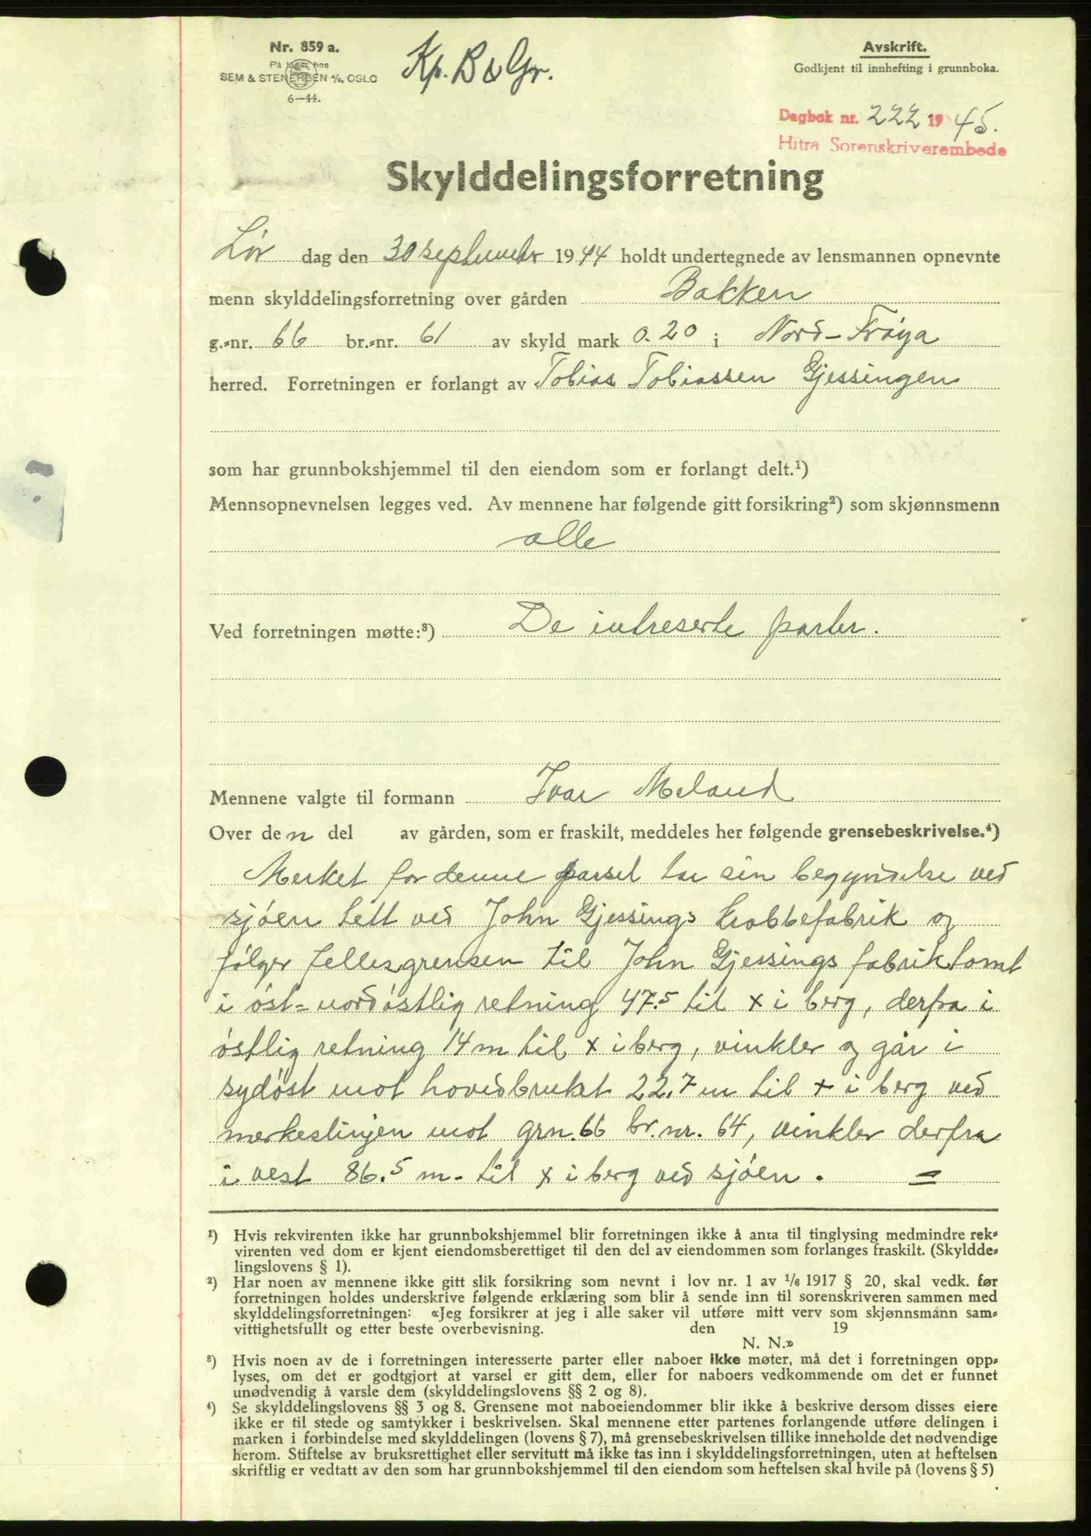 Nr. 859 a.
På lager hos
SEM & STENERSEN A/S, OSLO
6—44.
Kp. B & Gr.
Avskrift.
Godkjent til innhefting i grunnboka.
Dagbok nr. 222 1945.
Hitra Sorenskriverembede
Skylddelingsforretning
Lør dag den 30 september 1944 holdt undertegnede av lensmannen opnevnte
menn skylddelingsforretning over gården Bakken
g.=nr. 66 br.=nr. 61 av skyld mark 0.20 i Nord-Frøya
herred. Forretningen er forlangt av Tobias Tobiassen Gjessingen
som har grunnbokshjemmel til den eiendom som er forlangt delt.¹)
Mennsopnevnelsen legges ved. Av mennene har følgende gitt forsikring²) som skjønnsmenn
alle
Ved forretningen møtte:³) De intreserte parter.
Mennene valgte til formann Ivar Meland
Over den del av gården, som er fraskilt, meddeles her følgende grensebeskrivelse.⁴)
Merket for denne parsel tar sin begyndelse ved
sjøen tett ved John Gjessings krabbefabrik og
følger fellesgrensen til John Gjessings fabriktomt
i øst=nordøstlig retning 47.5 til x i berg, derfra i
østlig retning 14 m til x i berg, vinkler og går i
sydøst mot hovedbruket 22,7 m til x i berg ved
merkeslinjen mot grn. 66 br. nr. 64, vinkler derfra
i vest 86.5 m. til x i berg ved sjøen. =
¹) Hvis rekvirenten ikke har grunnbokshjemmel blir forretningen ikke å anta til tinglysing medmindre rek=
virenten ved dom er kjent eiendomsberettiget til den del av eiendommen som forlanges fraskilt. (Skyldde=
lingslovens § 1).
²) Har noen av mennene ikke gitt slik forsikring som nevnt i lov nr. 1 av ¹/₆ 1917 § 20, skal vedk. før
forretningen holdes underskrive følgende erklæring som blir å sende inn til sorenskriveren sammen med
skylddelingsforretningen: «Jeg forsikrer at jeg i alle saker vil utføre mitt verv som skjønnsmann sam=
vittighetsfullt og etter beste overbevisning. den 19
N. N.»
³) Hvis noen av de i forretningen interesserte parter eller naboer ikke møter, må det i forretningen opp=
lyses, om det er godtgjort at varsel er gitt dem, eller for naboers vedkommende om det er funnet
unødvendig å varsle dem (skylddelingslovens §§ 2 og 8).
⁴) Se skylddelingslovens §§ 3 og 8. Grensene mot naboeiendommer blir ikke å beskrive dersom disses eiere
ikke er til stede og samtykker i beskrivelsen. Skal mennene etter partenes forlangende utføre delingen i
marken i forbindelse med skylddelingen (lovens § 7), må grensebeskrivelsen tillike inneholde det nødvendige
herom. Stiftelse av bruksrettighet eller servitutt må ikke tas inn i skylddelingsforretningen, uten at heftelsen
skriftlig er vedtatt av den som har grunnbokshjemmel til den eiendom som heftelsen skal hvile på (lovens § 5)